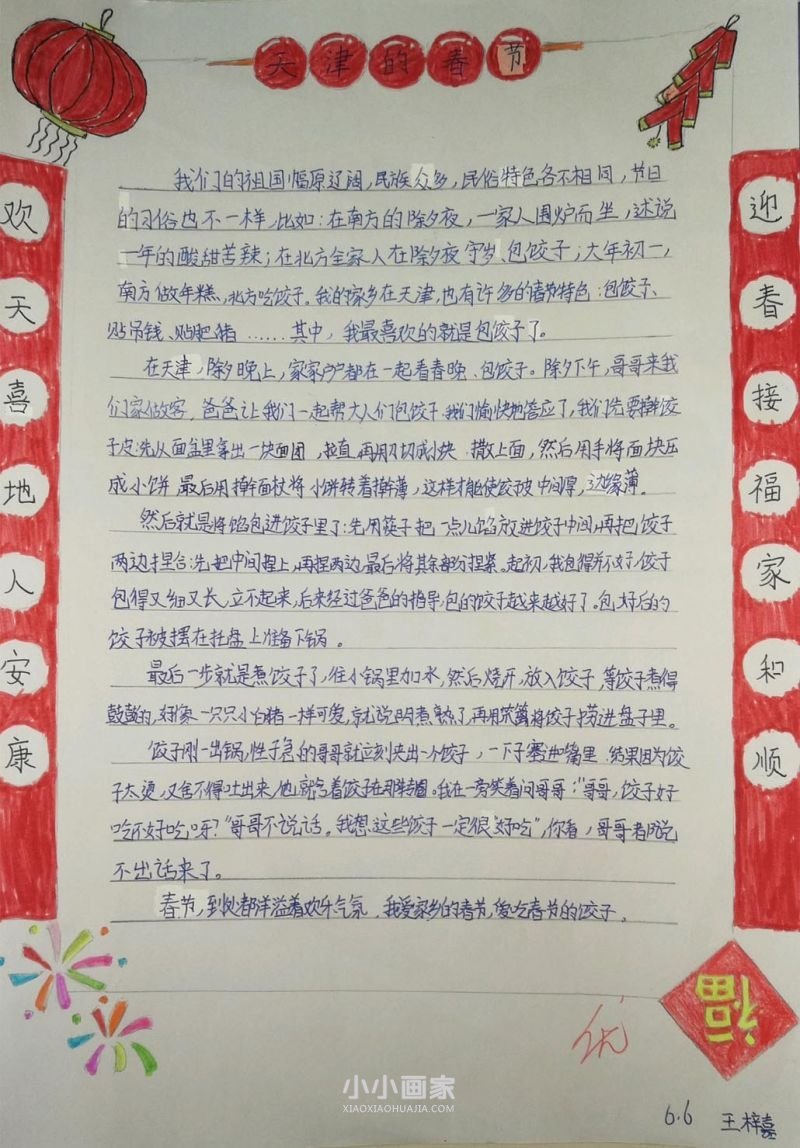 天津的春节
欢天喜地人安康
迎春接福家和顺
我们的祖国幅原辽阔,民族众多,民俗特色各不相同,节日
的习俗也不一样,比如:在南方的除夕夜,一家人围炉而坐,述说
一年的酸甜苦辣;在北方全家人在除夕夜守岁、包饺子;大年初一,
南方做年糕,北方吃饺子。我的家乡在天津,也有许多的春节特色:包饺子、
贴吊钱、贴肥猪……其中,我最喜欢的就是包饺子了。
在天津,除夕晚上,家家户户都在一起看春晚、包饺子。除夕下午,哥哥来我
们家做客,爸爸让我们一起帮大人们包饺子,我们愉快地答应了,我们先要擀饺
子皮:先从面盆里拿出一块面团,拉直,再用刀切成小块,撒上面,然后用手将面块压
成小饼,最后用擀面杖将小饼转着擀薄,这样才能使饺皮中间厚,边缘薄。
然后就是将馅包进饺子里了:先用筷子把一点儿馅放进饺子中间,再把饺子
两边捏合:先把中间捏上,再捏两边,最后将其余部分捏紧。起初,我包得并不好,饺子
包得又细又长,立不起来,后来经过爸爸的指导,包的饺子越来越好了。包好后的
饺子被摆在托盘上准备下锅。
最后一步就是煮饺子了,往小锅里加水,然后烧开,放入饺子,等饺子煮得
鼓鼓的,好像一只只小白猪一样可爱,就说明煮熟了,再用笊篱将饺子捞进盘子里。
饺子刚一出锅,性子急的哥哥就立刻夹出一个饺子,一下子塞进嘴里,结果因为饺
子太烫,又舍不得吐出来,他就含着饺子在那转圈。我在一旁笑着问哥哥:“哥哥,饺子好
吃不好吃呀?”哥哥不说话。我想这些饺子一定很“好吃”,你看,哥哥都说
不出话来了。
春节,到处都洋溢着欢乐气氛,我爱家乡的春节,爱吃春节的饺子。
福
优
小小画家
XIAOXIAOHUAJIA.COM
6.6 王梓嘉